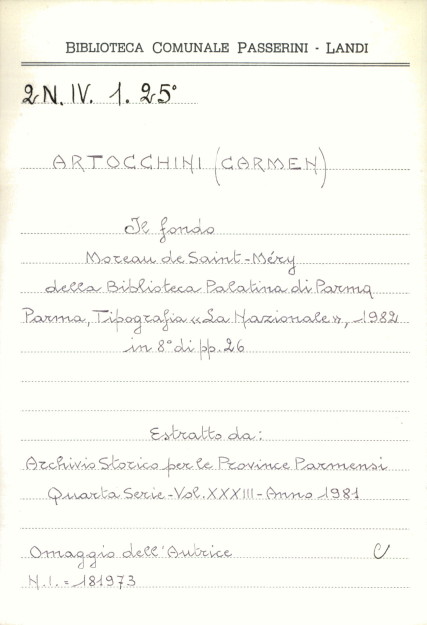 BIBLIOTECA COMUNALE PASSERINI - LANDI
2N. IV. 1. 25°
ARTOCCHINI (CARMEN)
Il fondo
Moreau de Saint-Méry
della Biblioteca Palatina di Parma
Parma, Tipografia «La Nazionale», 1982
in 8° di pp. 26
Estratto da:
Archivio Storico per le Province Parmensi
Quarta Serie - Vol. XXXIII - Anno 1981
Omaggio dell'Autrice C
N.I. = 181973